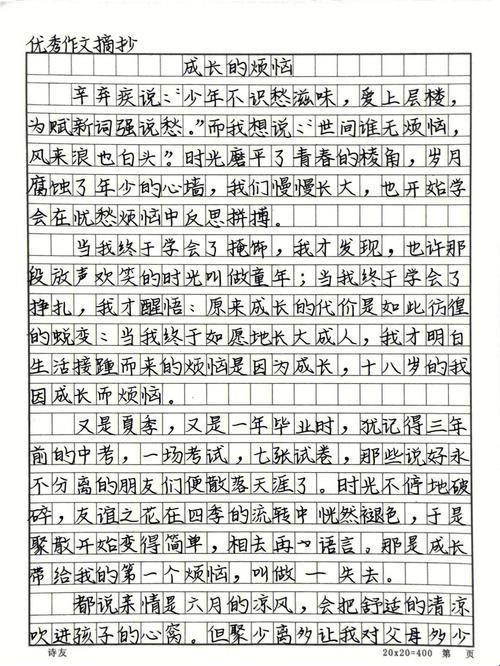 优秀作文摘抄
成长的烦恼
辛弃疾说："少年不识愁滋味，爱上层楼，
为赋新词强说愁。"而我想说："世间谁无烦恼，
风来浪也白头？时光磨平了青春的棱角，岁月
腐蚀了年少的心墙，我们慢慢长大，也开始学
会在忧愁烦恼中反思拼搏。
当我终于学会了掩饰，我才发现，也许那
段放声欢笑的时光叫做童年；当我终于学会了
挣扎，我才醒悟：原来成长的代价是如此彷徨
的蜕变：当我终于如愿地长大成人，我才明白
生活接踵而来的烦恼是因为成长，十八岁的我
因成长而烦恼。
又是夏季，又是一年毕业时，犹记得三年
前的中考，一场考试，七张试卷，那些说好永
不分离的朋友们便散落天涯了。时光不停地破
碎，友谊之花在四季的流转中恍然褪色，于是
聚散开始变得简单，相去再一语言。那是成长
带给我的第一个烦恼，叫做—失去。
都说亲情是六月的凉风，会把舒适的清凉
吹进孩子的心窝。但聚少离多让我对父母多少
诗友 20x20=400 第 页